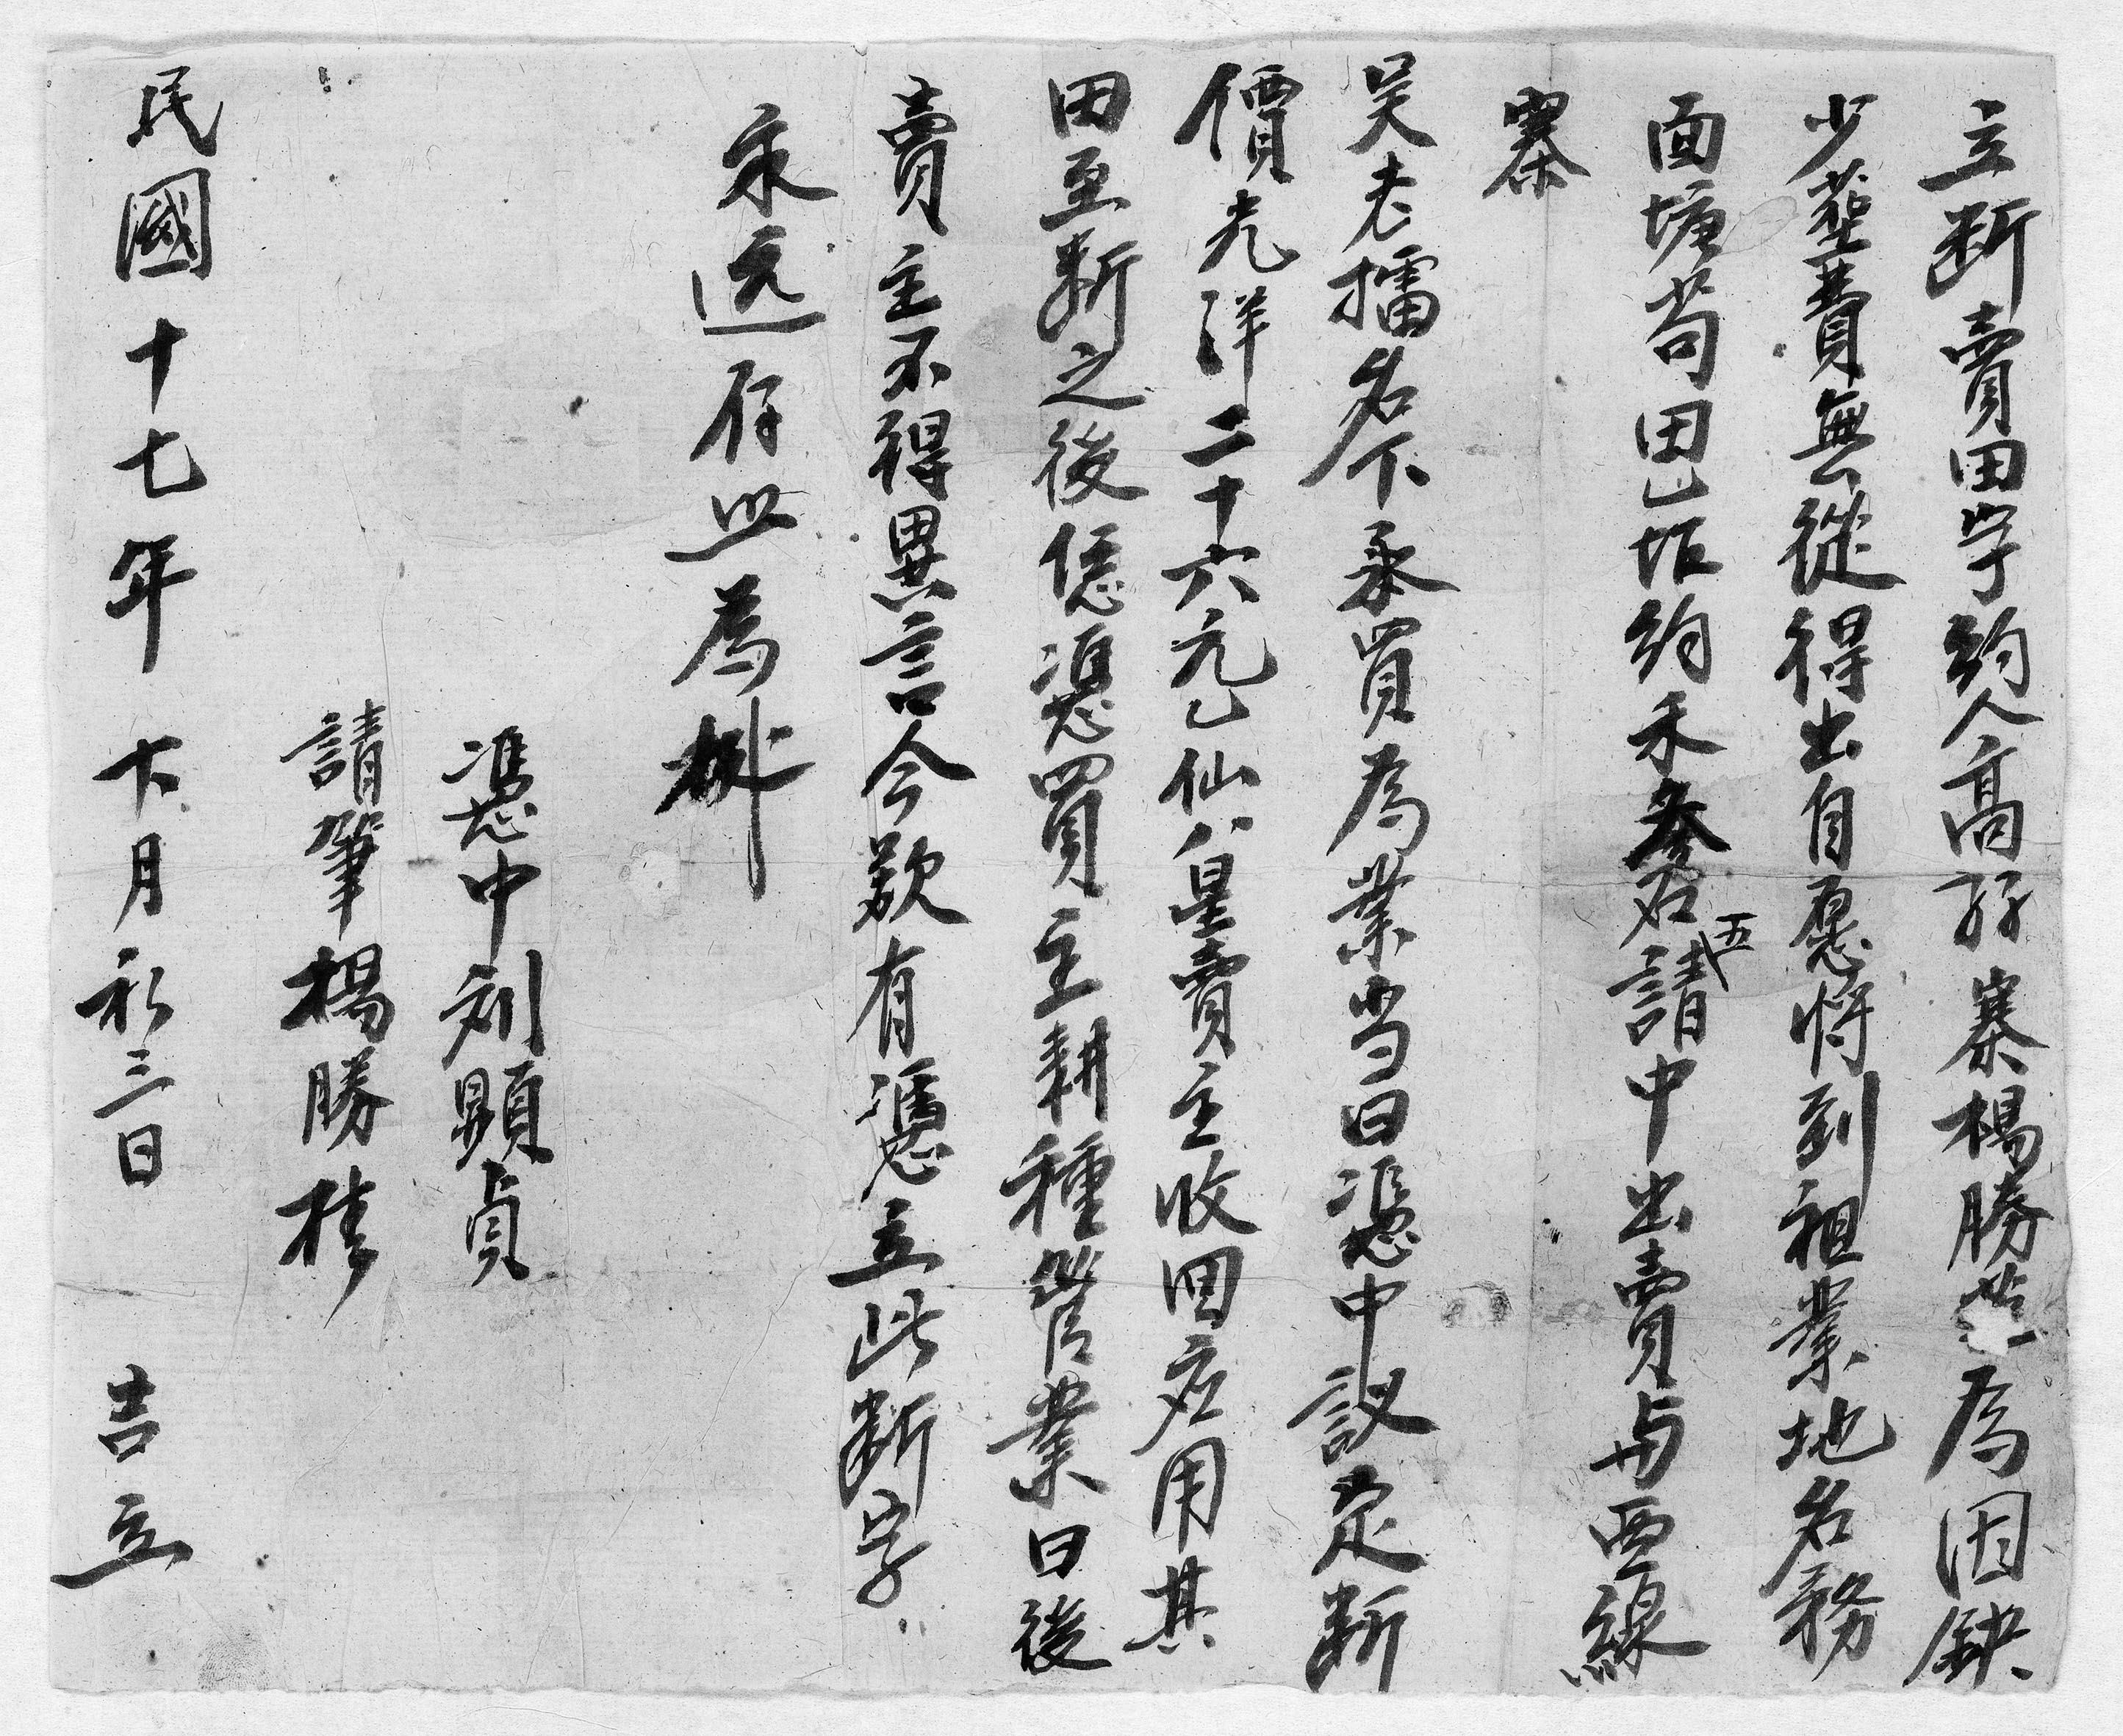 立断賣田字約人高孖寨楊勝為因缺
少葬費無從得出自愿將到祖業地名務
面塘茍田乚坵約禾叁石五請中出賣与西線
寨
吴老擂名下承買為業当日憑中議定断
價光洋二十六元乚仙八星賣主收囬应用其
田至断之後億憑買主耕種管業日後
賣主不得異言今欲有憑立此断字
永远存照為據
憑中刘顕貞
請筆楊勝桂
民國十七年月初三日 吉立